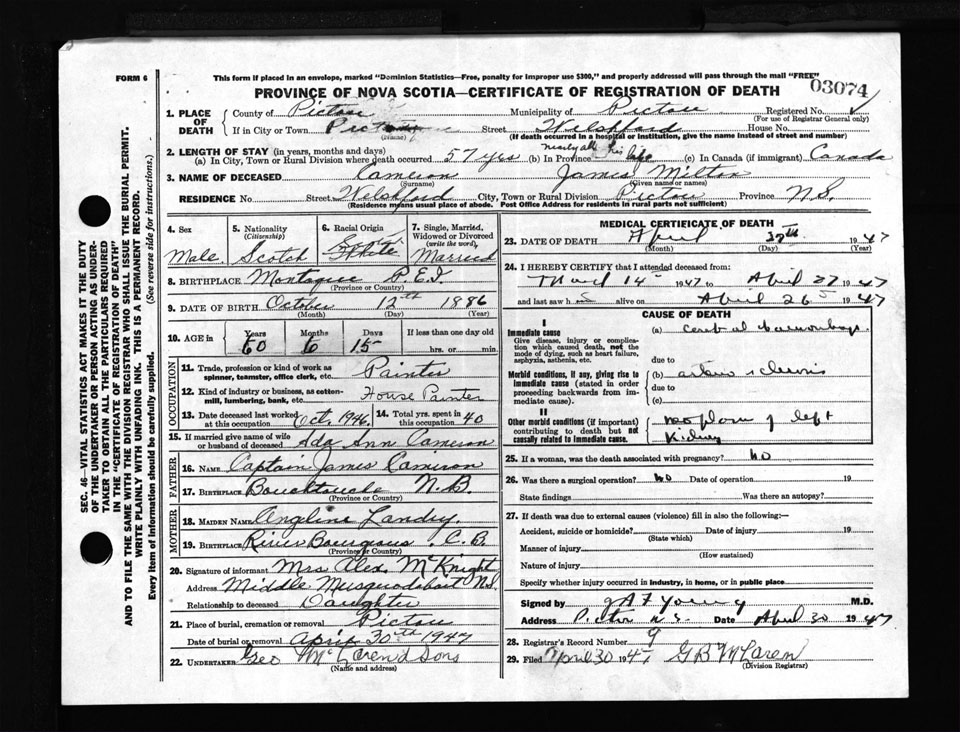 FORM 6
This form if placed in an envelope, marked "Dominion Statistics—Free, penalty for improper use $300," and properly addressed will pass through the mail "FREE"
PROVINCE OF NOVA SCOTIA—CERTIFICATE OF REGISTRATION OF DEATH
03074
1. PLACE OF DEATH
County of Pictou Municipality of Pictou Registered No.
(For use of Registrar General only)
If in City or Town Street Welshford House No.
(Name) (If death occurred in a hospital or institution, give the name instead of street and number)
2. LENGTH OF STAY (in years, months and days)
(a) In City, Town or Rural Division where death occurred 57 yrs (b) In Province nearly all his life (c) In Canada (if immigrant) Canada
3. NAME OF DECEASED Cameron James Milton
(Surname) (Given name or names)
RESIDENCE No. Street Welshford City, Town or Rural Division Pictou Province N.S.
(Residence means usual place of abode. Post Office Address for residents in rural parts not sufficient)
4. Sex
Male
5. Nationality (Citizenship)
Scotch
6. Racial Origin
White
7. Single, Married, Widowed or Divorced (write the word)
Married
8. BIRTHPLACE Montague P.E.I.
(Province or Country)
9. DATE OF BIRTH October 12th 1886
(Month) (Day) (Year)
10. AGE in Years Months Days If less than one day old
60 6 15 hrs. or min.
OCCUPATION
11. Trade, profession or kind of work as spinner, teamster, office clerk, etc. Painter
12. Kind of industry or business, as cotton-mill, lumbering, bank, etc. House Painter
13. Date deceased last worked at this occupation Oct. 1946. 14. Total yrs. spent in this occupation 40
15. If married give name of wife or husband of deceased Ada Ann Cameron
FATHER
16. NAME Captain James Cameron
17. BIRTHPLACE Bouchtouche N.B.
(Province or Country)
MOTHER
18. MAIDEN NAME Angeline Landry.
19. BIRTHPLACE River Bourgeous C.B.
(Province or Country)
20. Signature of informant Mrs Alex McKnight
Address Middle Musquodoboit N.S.
Relationship to deceased Daughter
21. Place of burial, cremation or removal Pictou
Date of burial or removal April 30th 1947
22. UNDERTAKER Geo McLaren & Sons
(Name and address)
MEDICAL CERTIFICATE OF DEATH
23. DATE OF DEATH April 1947
(Month) (Day) (Year)
24. I HEREBY CERTIFY that I attended deceased from:
14 1947 to April 27 1947
and last saw h alive on April 26 1947
CAUSE OF DEATH
I
Immediate cause
Give disease, injury or complication which caused death, not the mode of dying, such as heart failure, asphyxia, asthenia, etc.
(a) cerebral haemorrhage.
due to
Morbid conditions, if any, giving rise to immediate cause (stated in order proceeding backwards from immediate cause).
(b) arterio sclerosis
due to
(c)
II
Other morbid conditions (if important) contributing to death but not causally related to immediate cause.
neoplasm of left
Kidney
25. If a woman, was the death associated with pregnancy? No
26. Was there a surgical operation? No Date of operation 19
State findings Was there an autopsy?
27. If death was due to external causes (violence) fill in also the following:—
Accident, suicide or homicide? Date of injury 19
(State which)
Manner of injury
(How sustained)
Nature of injury
Specify whether injury occurred in industry, in home, or in public place
Signed by J A F Young M.D.
Address Pictou N.S. Date April 30 1947
28. Registrar's Record Number 9
29. Filed April 30 1947 G B McLaren
(Division Registrar)
SEC. 46—VITAL STATISTICS ACT MAKES IT THE DUTY
OF THE UNDERTAKER OR PERSON ACTING AS UNDER-
TAKER TO OBTAIN ALL THE PARTICULARS REQUIRED
IN THE "CERTIFICATE OF REGISTRATION OF DEATH"
AND TO FILE THE SAME WITH THE DIVISION REGISTRAR WHO SHALL ISSUE THE BURIAL PERMIT.
WRITE PLAINLY WITH UNFADING INK. THIS IS A PERMANENT RECORD.
Every item of information should be carefully supplied. (See reverse side for instructions.)